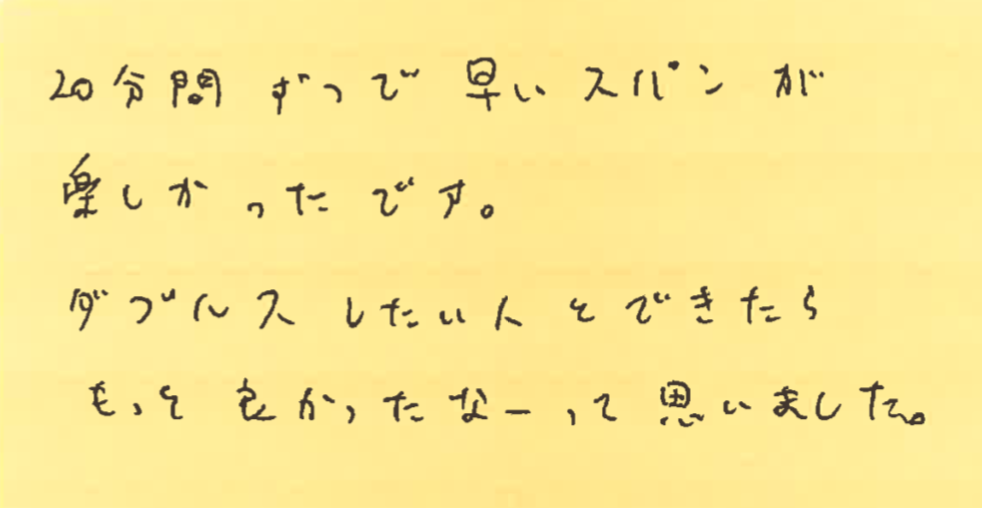 20分間ずつで早いスパンが
楽しかったです。
ダブルスしたい人とできたら
もっと良かったなーって思いました。